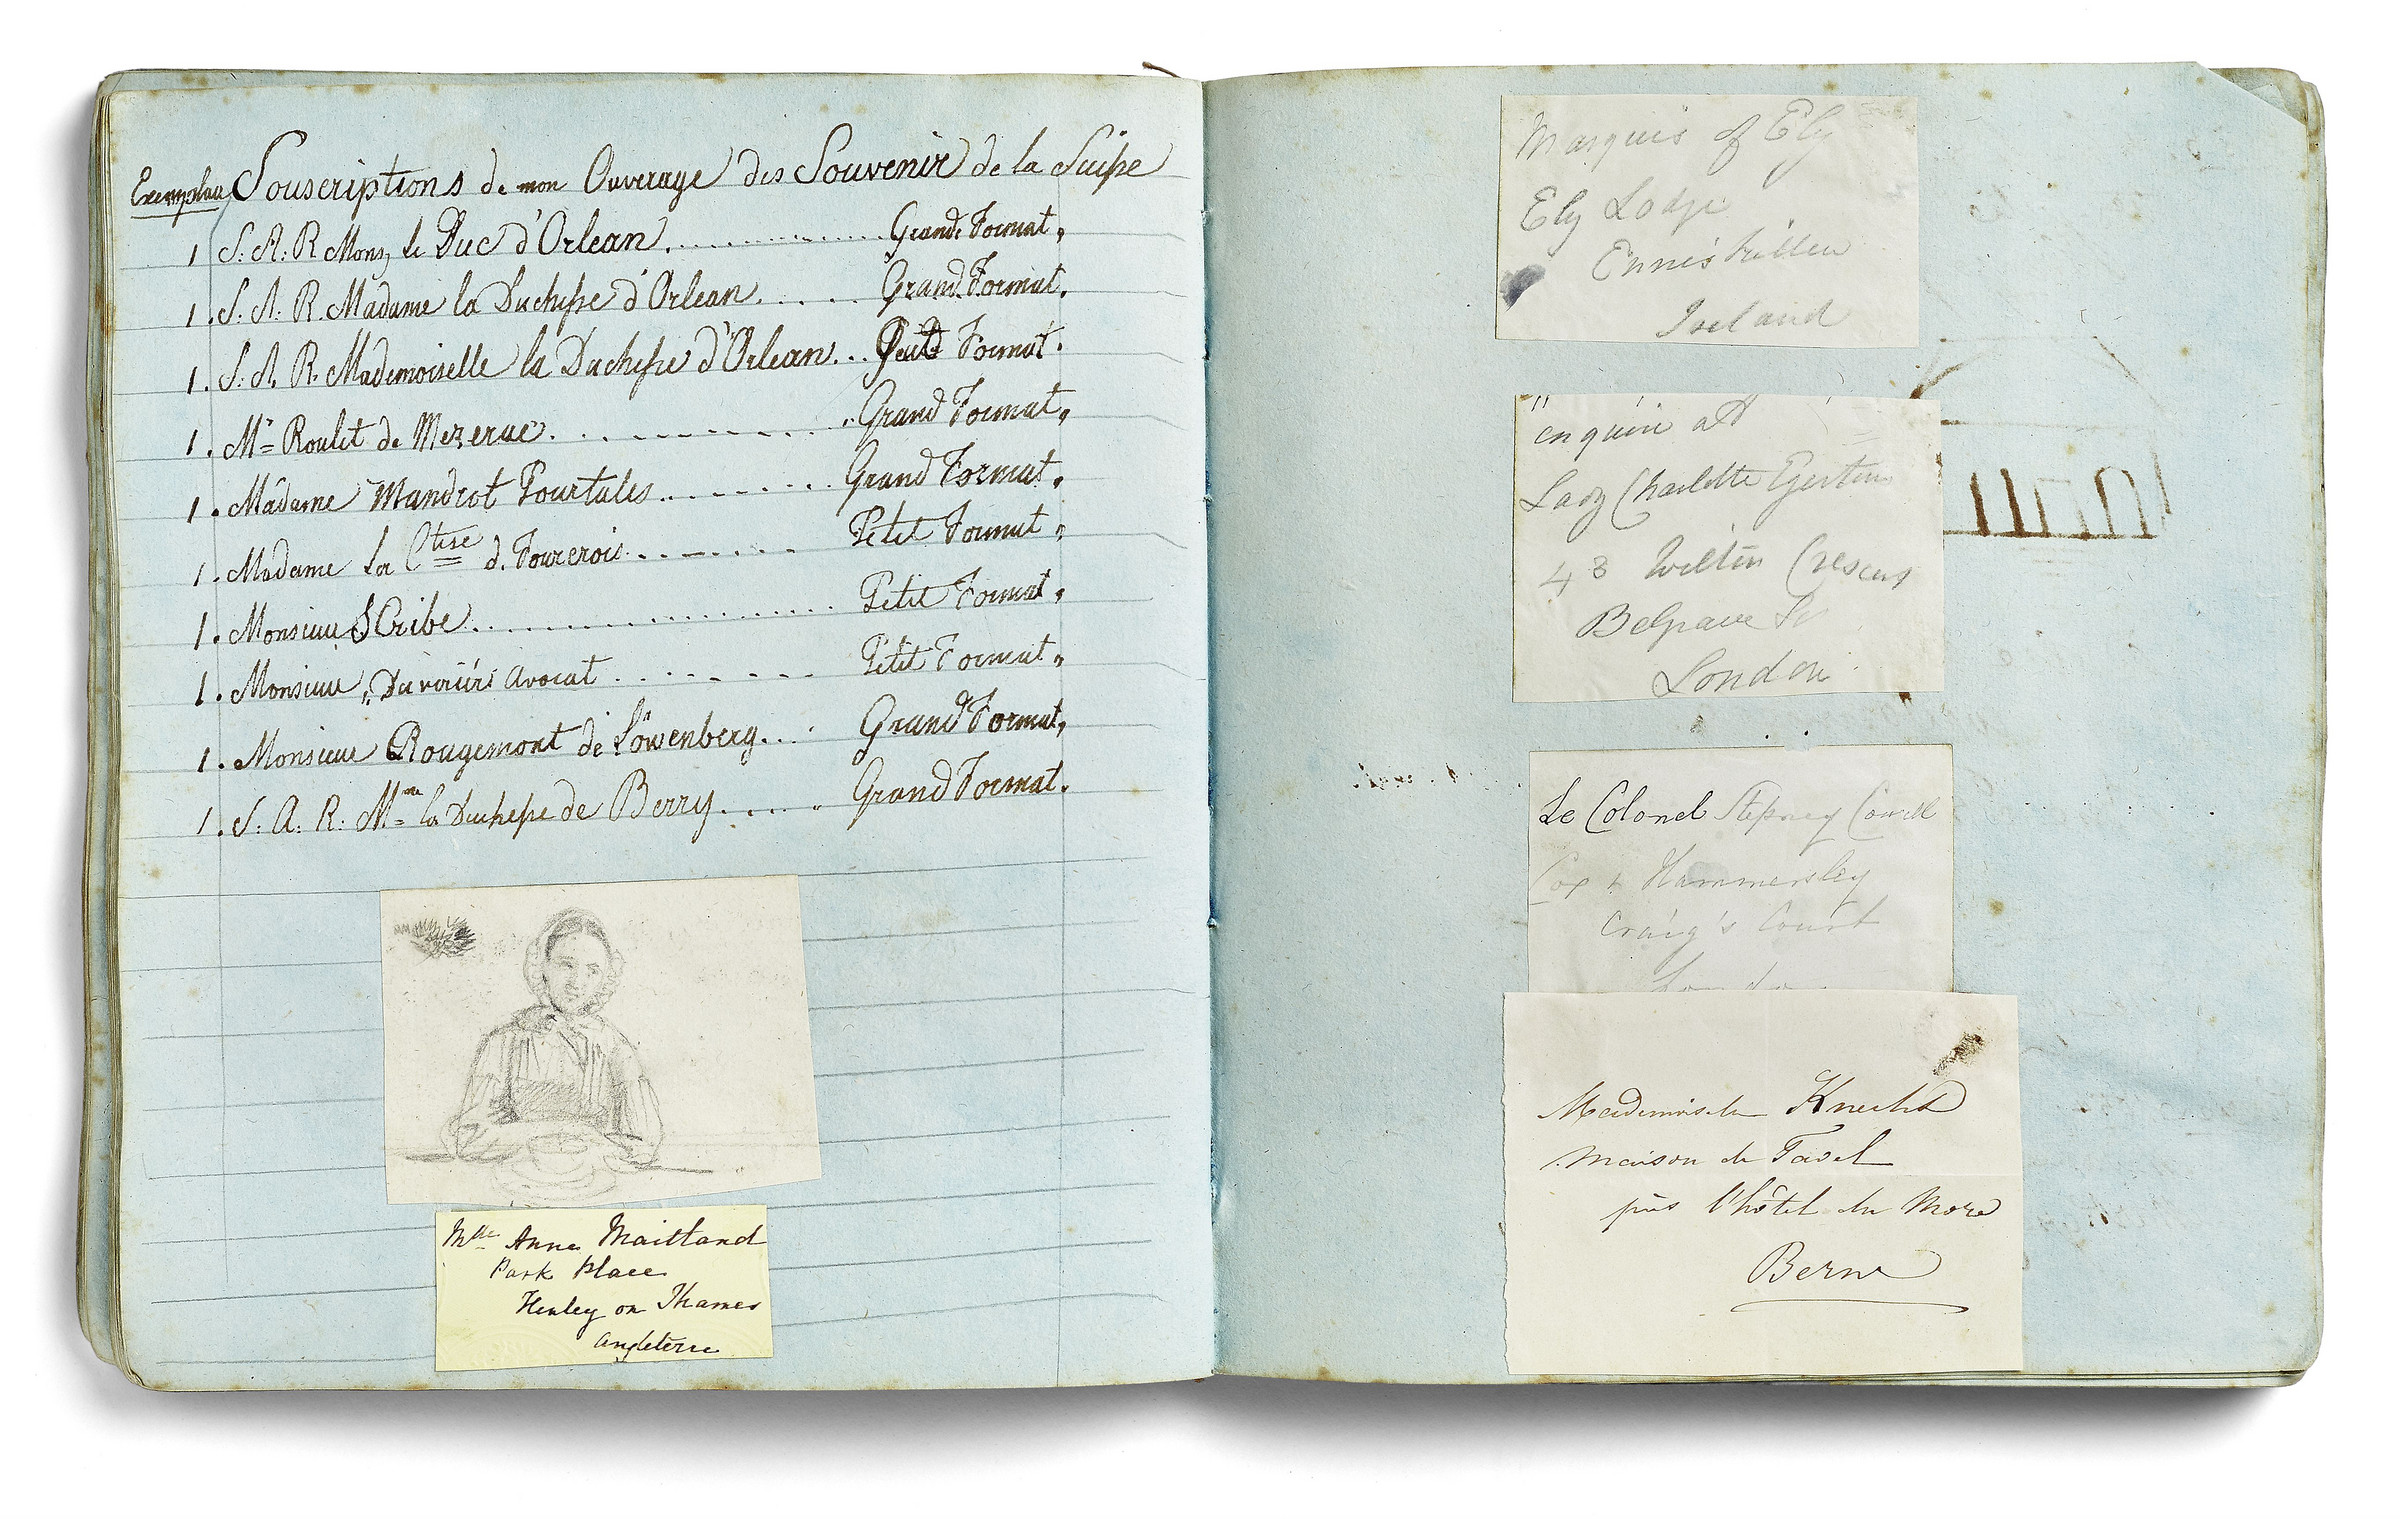 Exemplau Souscriptions de mon Ouvrage des Souvenir de la Suiſse
1 S. A. R Mons, le Duc d'Orlean. Grand. Format,
1. S. A. R. Madame la Ducheſse d'Orlean. Grand. Format.
1. S. A. R. Mademoiselle la Ducheſse d'Orlean. Petit Format.
1. Mr Roulet de Mezerac. Grand Format,
1. Madame Mandrot Pourtales. Grand Format,
1. Madame La Ctesse d. Fourcrois. Petit Format,
1. Monsieur Scribe. Petit Format,
1. Monsieur, Avocat Petit Format,
1. Monsieur Rougemont de Löwenberg. Grand Format,
1. S. A. R. Mme la Ducheſse de Berry. Grand Format.
Mlle Anna Maitland
Park Place
Henley on Thames
Angleterre
Marquis of Ely
Ely Lodge
Enniskillen
Ireland
enquire at
Lady Charlotte Egerton
43 Wilton Crescent
Belgrave Sr
London
Le Colonel Stepney Cowell
Cox & Hammersley
Craig's Court
London
Mademoiselle Knecht
Maison de Tavel
près l'hôtel du More
Berne